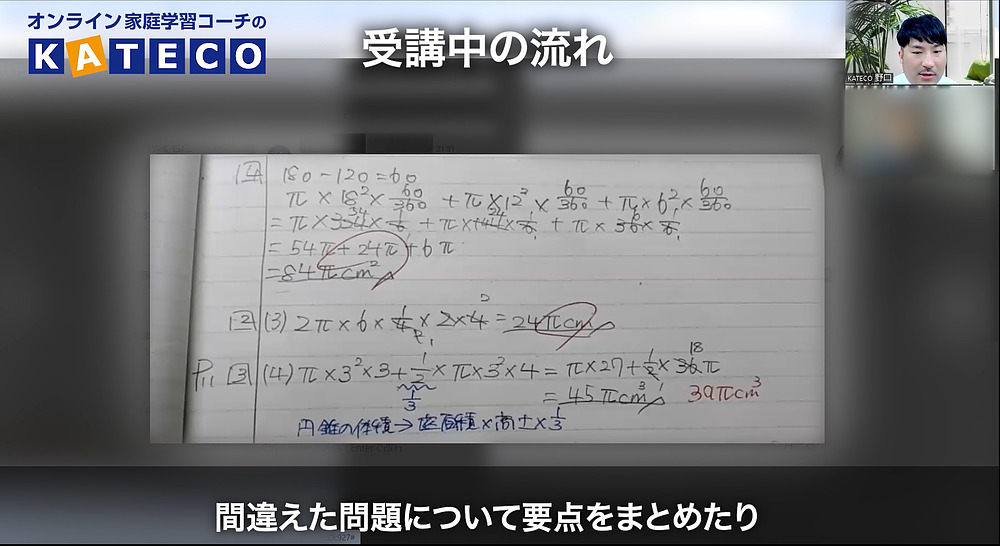 オンライン家庭学習コーチの
KATECO
受講中の流れ
KATECO 野口
4 180-120=60
π×18²×60/360+π×12²×60/360+π×6²×60/360
=π×324×1/6+π×144×1/6+π×36×1/6
=54π+24π+6π
=84πcm²
2 (3) 2π×6×1/4×2×4=24πcm
P11 3 (4) π×3²×3+1/2×π×3²×4=π×27+1/2×36π
1/3
=45πcm³ 39πcm³
円錐の体積→底面積×高さ×1/3
間違えた問題について要点をまとめたり